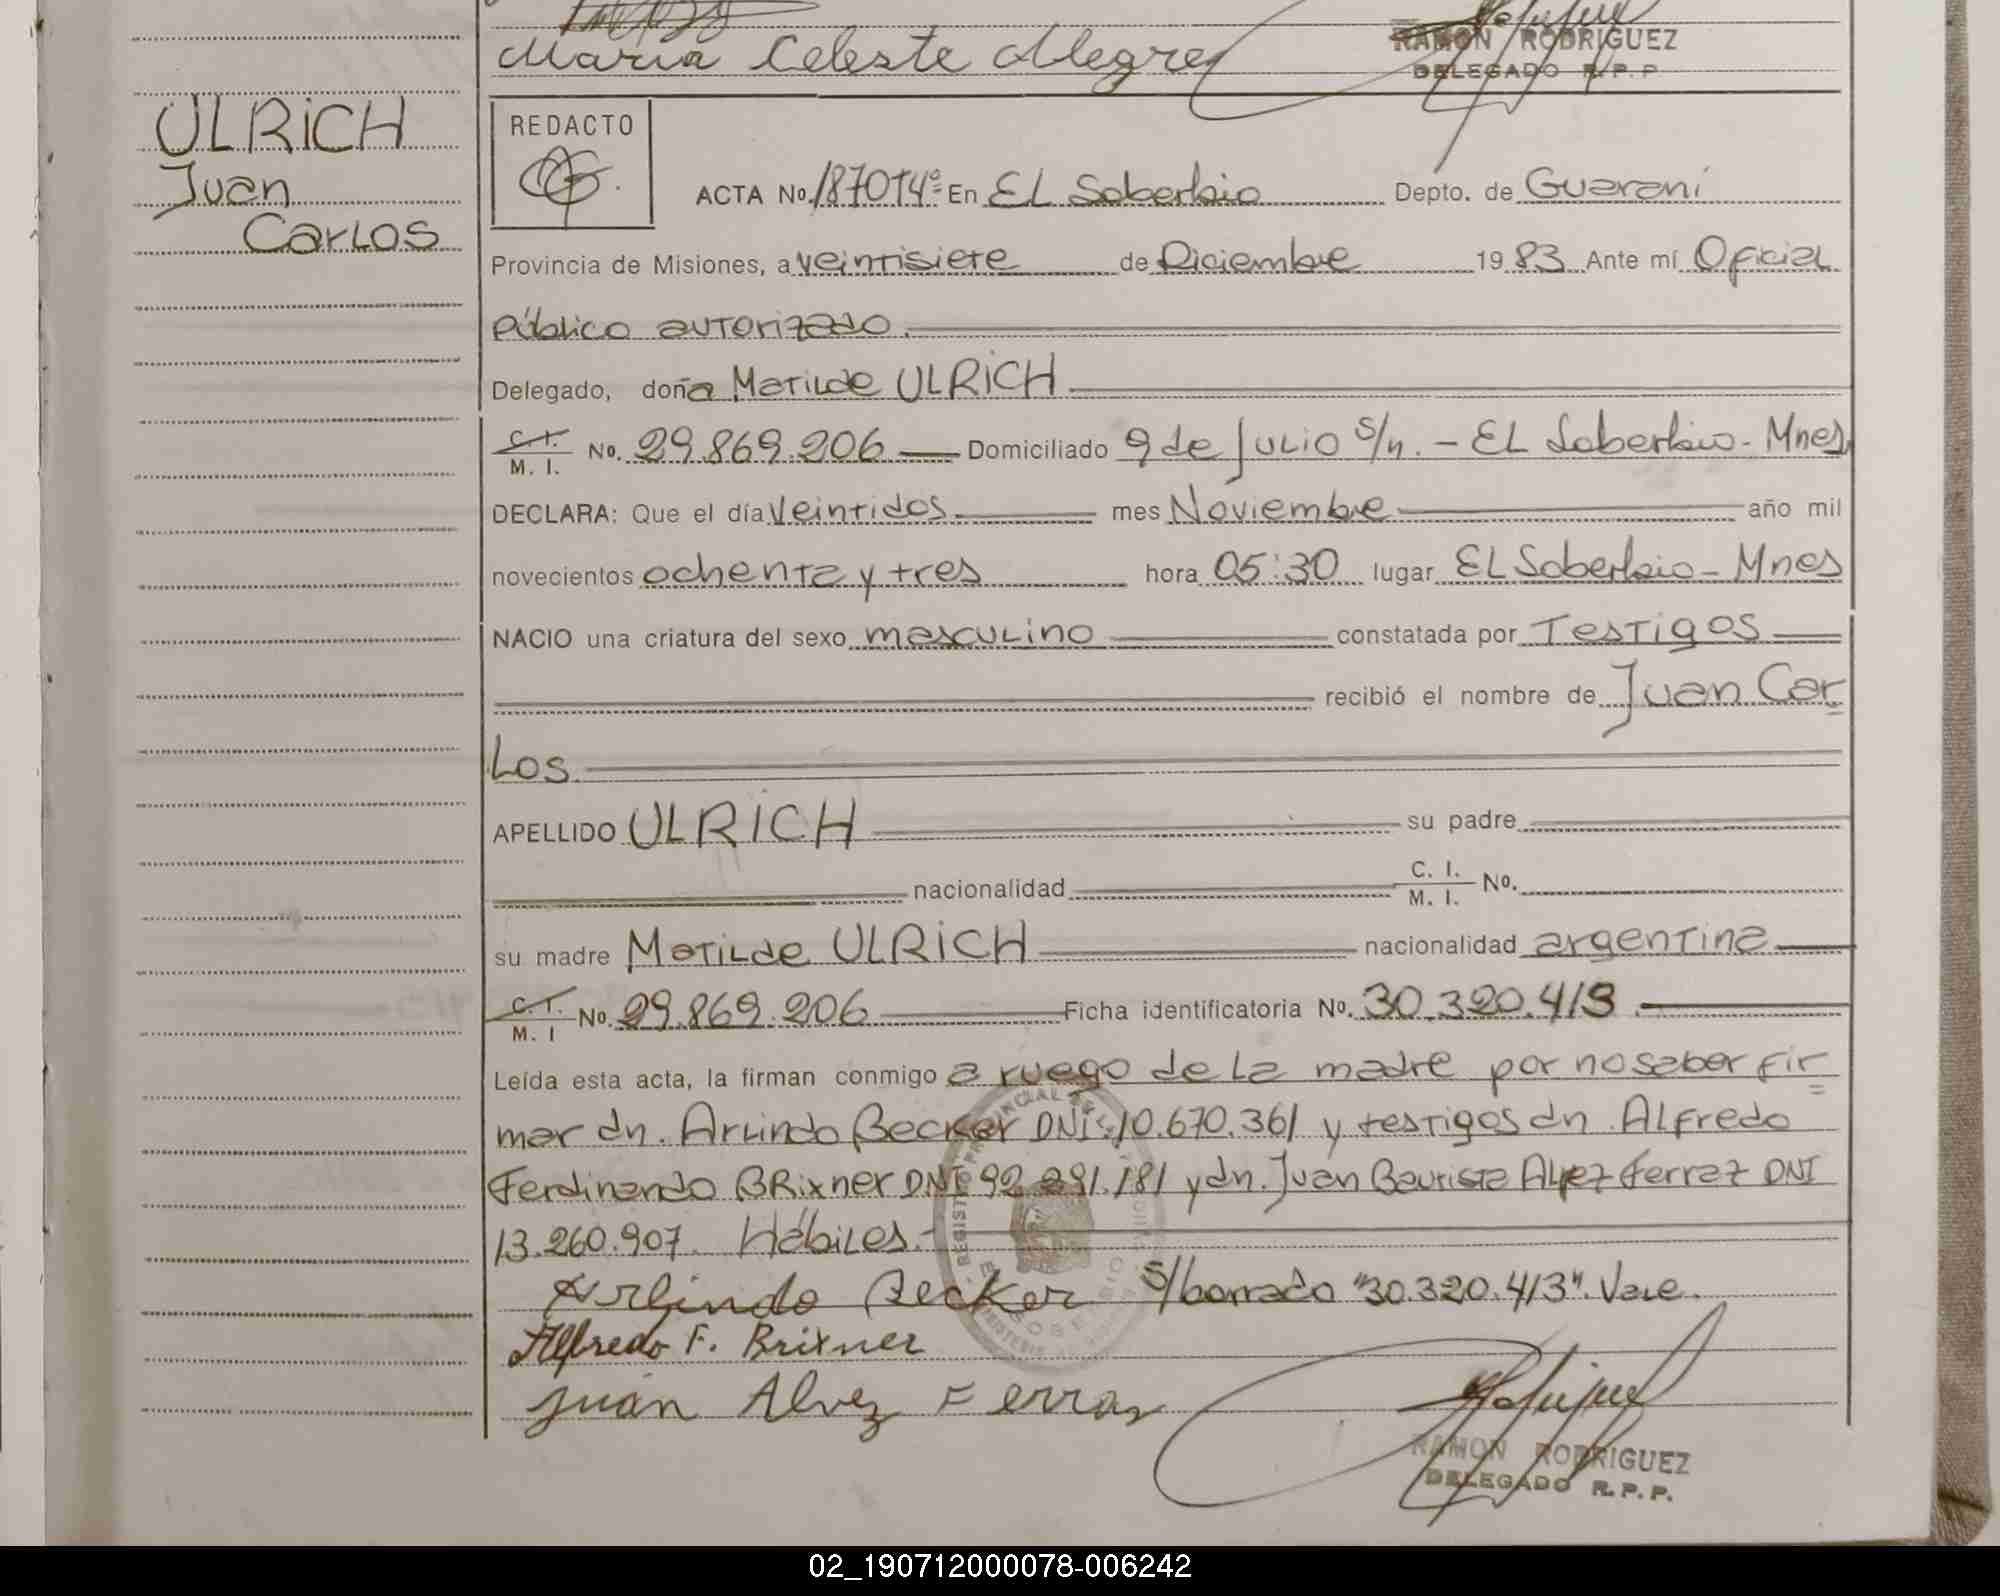 Maria Celeste Alegre
RAMON RODRIGUEZ
DELEGADO R.P.P
ULRICH
Juan
Carlos
REDACTO
ACTA No. 187 OT4º En EL Soberbio Depto. de Guaraní
Provincia de Misiones, a veintisiete de Diciembre 1983 Ante mí Oficial
Público autorizado.
Delegado, doña Matilde ULRICH
C.I. / M. I. No. 29.869.206 Domiciliado 9 de Julio s/n. - EL Soberbio - Mnes
DECLARA: Que el día veintidos mes Noviembre año mil
novecientos ochenta y tres hora 05:30 lugar EL Soberbio - Mnes
NACIO una criatura del sexo masculino constatada por Testigos
recibió el nombre de Juan Car
Los
APELLIDO ULRICH su padre
nacionalidad C. I. / M. I. No.
su madre Matilde ULRICH nacionalidad argentina
C. I. / M. I No. 29.869.206 Ficha identificatoria No. 30.320.413
Leída esta acta, la firman conmigo a ruego de La madre por no saber fir
mar dn. Arlindo Becker DNI: 10.670.361 y testigos dn. Alfredo
Ferdinando BRixner DNI 92.291.181 y dn. Juan Bautista Alvez Ferraz DNI
13.260.907. Hábiles.-
Arlindo Becker s/borrado "30.320.413". Vale.
Alfredo F. Brixner
Juan Alvez Ferraz
RAMON RODRIGUEZ
DELEGADO R.P.P.
02_190712000078-006242